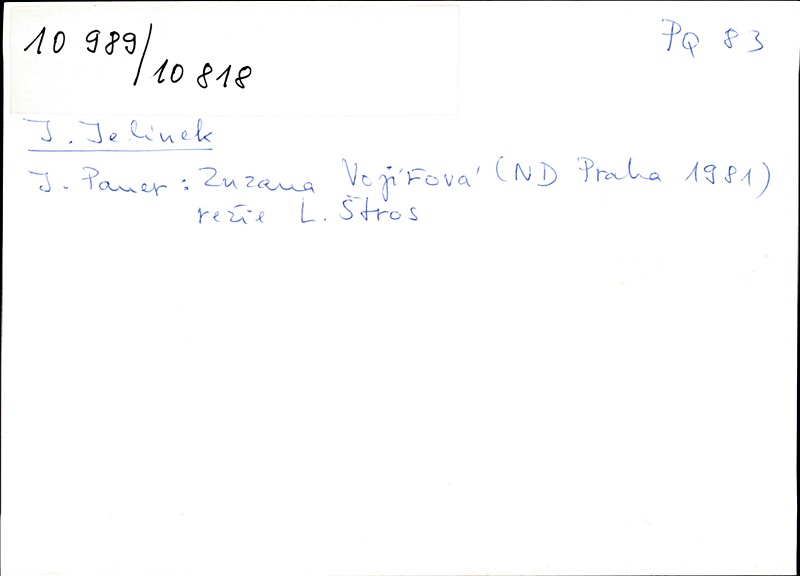 10 989/10 818
PQ 83
J. Jelinek
J. Pauer: Zuzana Vojířová (ND Praha 1981)
režie L. Štros